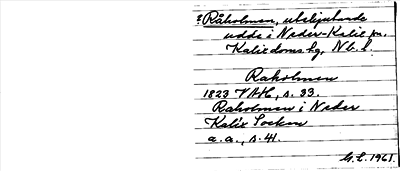 ? Råholmen, utskjutande
udde i Neder-Kalix sn.
Kalix doms.hg, Nb. l.
Raholmen
1823 VAH, s. 33.
Raholmen i Neder
Kalix Socken
a.a., s. 41.
G.L. 1961.